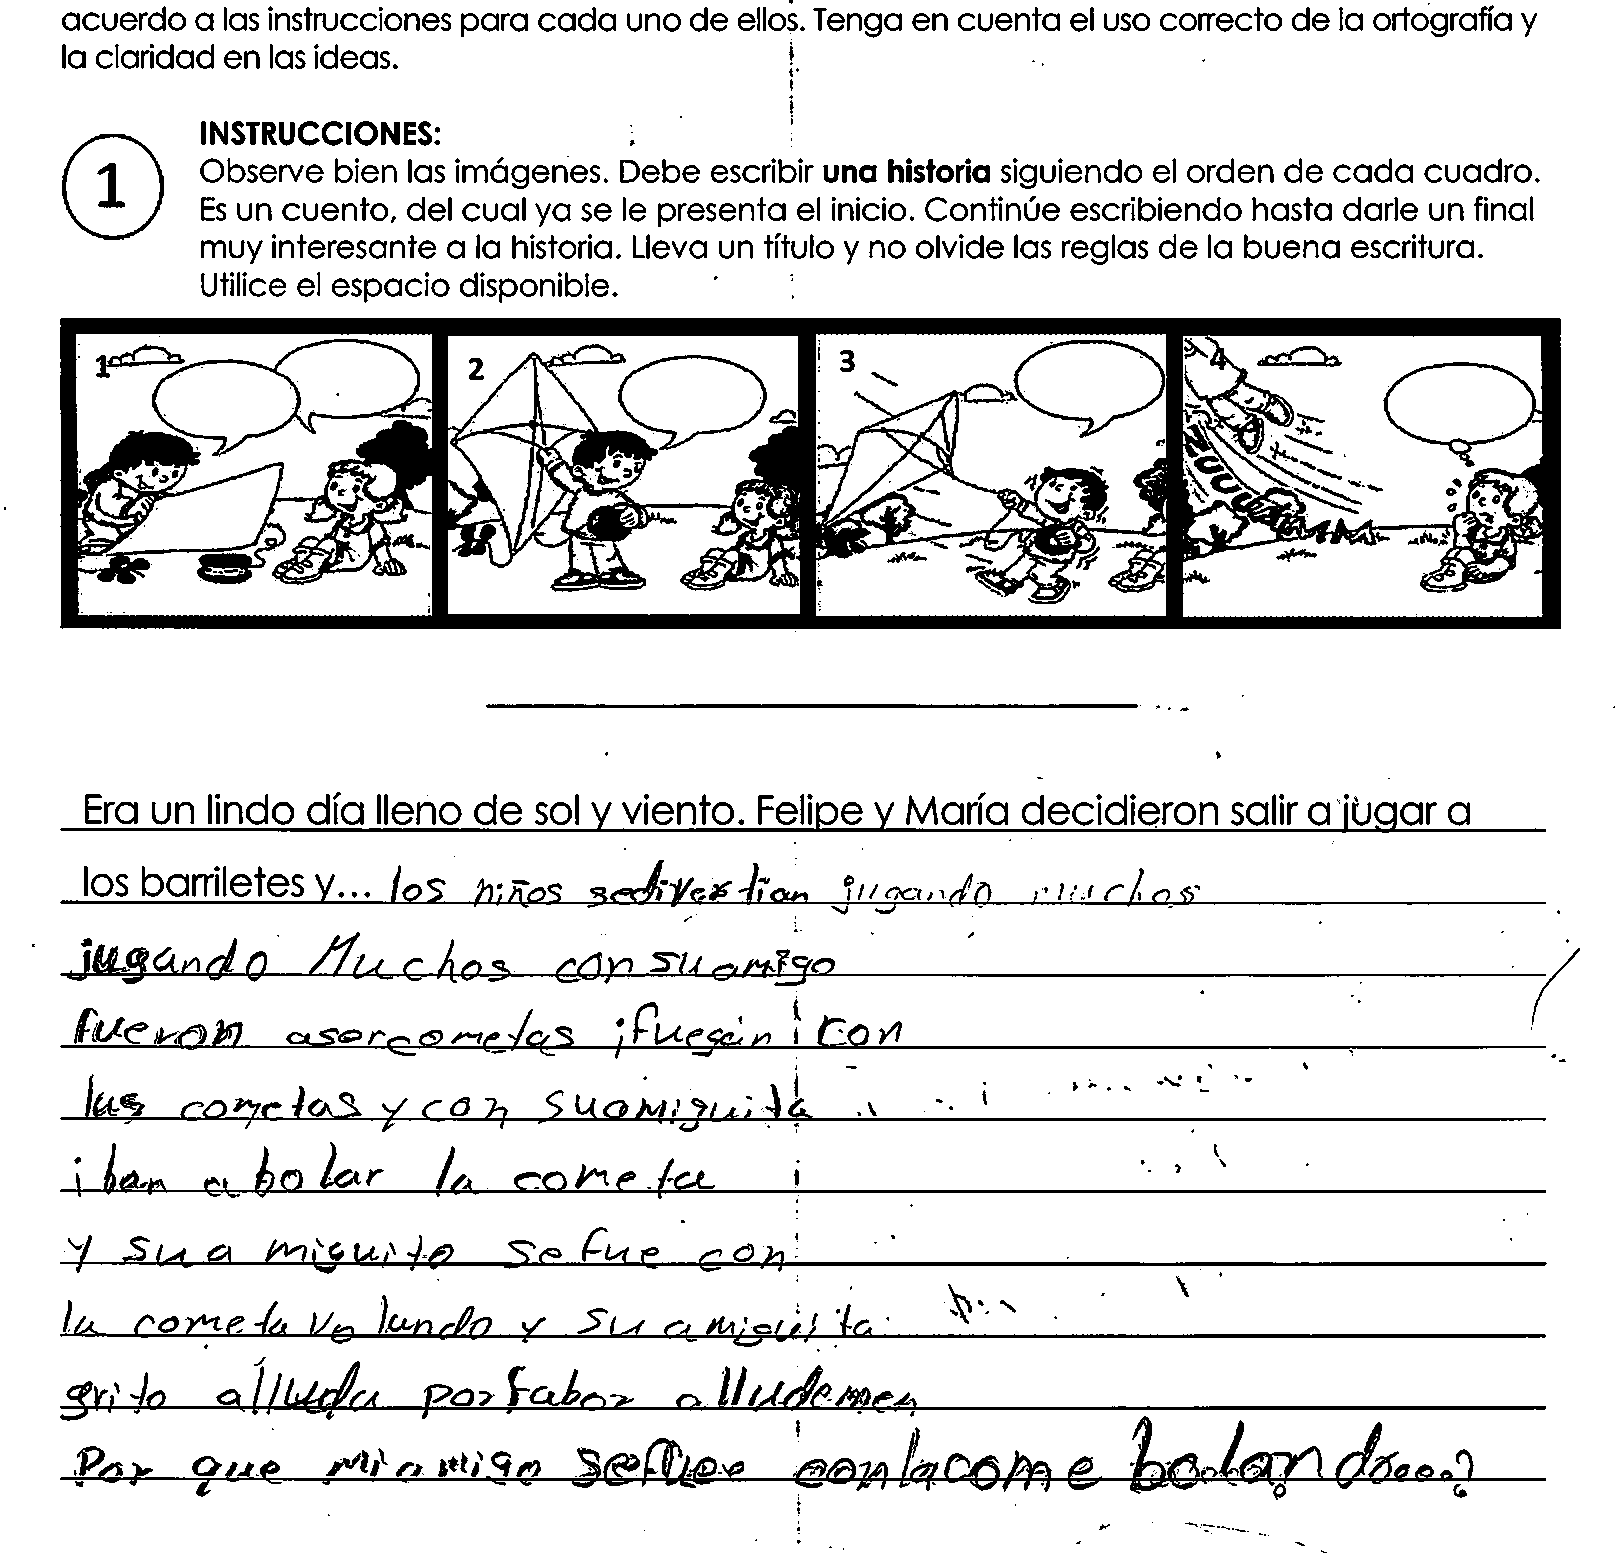 acuerdo a las instrucciones para cada uno de ellos. Tenga en cuenta el uso correcto de la ortografía y
la claridad en las ideas.
INSTRUCCIONES:
1
Observe bien las imágenes. Debe escribir una historia siguiendo el orden de cada cuadro.
Es un cuento, del cual ya se le presenta el inicio. Continúe escribiendo hasta darle un final
muy interesante a la historia. Lleva un título y no olvide las reglas de la buena escritura.
Utilice el espacio disponible.
1 2 3 4
Era un lindo día lleno de sol y viento. Felipe y María decidieron salir a jugar a
los barriletes y... los niños sedivertian jugando muchos
jugando Muchos con su amigo
fueron asorcometas
con
las cometas y con suamiguita
iban a bolar la cometa
y su a miguito se fue con
la cometa volando y su amiguita
grito alluda porfabor alludemen
Por que mi amigo sefue conlacome bolando...?